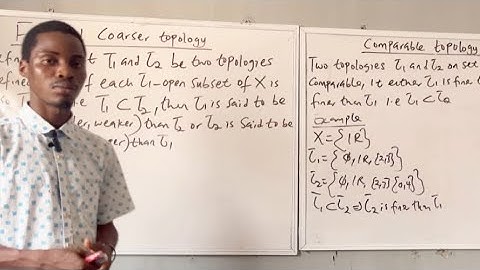 F Coarser topology
τ1 and τ2 be two topologies
of each τ1-open subset of X is
τ1 ⊂ τ2, then τ1 is said to be
weaker) than τ2 or τ2 is Said to be
) than τ1
Comparable topology
Two topologies τ1 and τ2 on set
Comparable, if either τ1 is fine t
finer than τ1 i.e τ1 ⊂ τ2
example
X = {IR}
τ1 = {φ, IR, {2,3}}
τ2 = {φ, IR, {2,3} {0,4}}
τ1 ⊂ τ2 ⇒ τ2 is finer than τ1